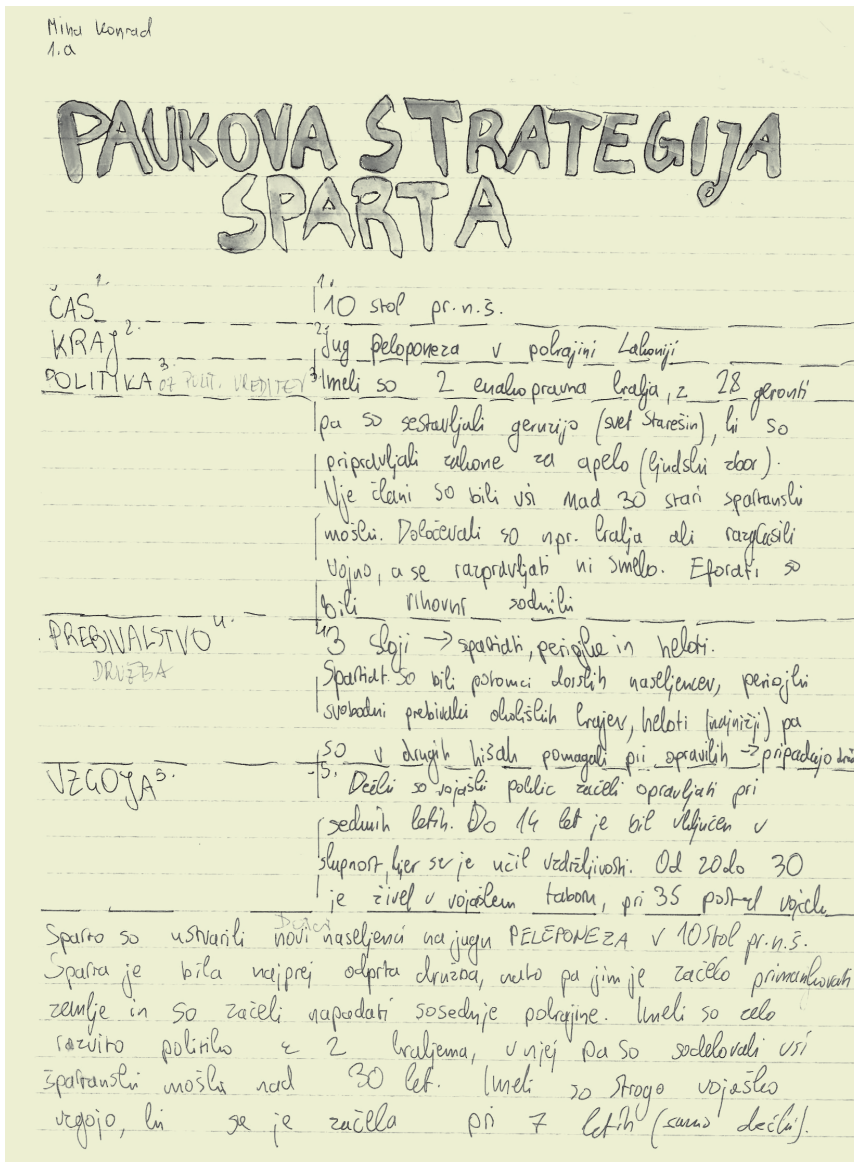 Miha Konrad
1.a
PAUKOVA STRATEGIJA
SPARTA
ČAS 1.
1. 10 stol pr.n.š.
KRAJ 2.
2. Jug peloponeza v pokrajini Lakoniji
POLITIKA 3. oz POLIT. UREDITEV
3. Imeli so 2 enakopravna kralja, z 28 geronti
pa so sestavljali geruzijo (svet starešin), ki so
pripravljali zakone za apelo (ljudski zbor).
Nje člani so bili vsi nad 30 stari spartanski
moški. Določevali so npr. kralja ali razglasili
vojno, a se razpravljati ni smelo. Eforati so
bili vrhovni sodniki
PREBIVALSTVO 4.
DRUŽBA
4. 3 sloji → spartiati, periojki in heloti.
Spartiat. so bili potomci dorskih naseljencev, periojki
svobodni prebivalci okoliških krajev, heloti (najnižji) pa
so v drugih hišah pomagali pri opravilih → pripadajo
VZGOJA 5.
5. Dečki so vojaški poklic začeli opravljati pri
sedmih letih. Do 14 let je bil vključen v
skupnost, kjer se je učil vzdržljivosti. Od 20 do 30
je živel v vojaškem taboru, pri 35 postal
Dorski
Sparto so ustvarili novi naseljenci na jugu PELEPONEZA v 10 stol pr.n.š.
Sparta je bila najprej odprta družba, nato pa jim je začelo primankovati
zemlje in so začeli napadati sosednje pokrajine. Imeli so zelo
razvito politiko z 2 kraljema, v njej pa so sodelovali vsi
špartanski moški nad 30 let. Imeli so strogo vojaško
vzgojo, ki se je začela pri 7 letih (samo dečki).